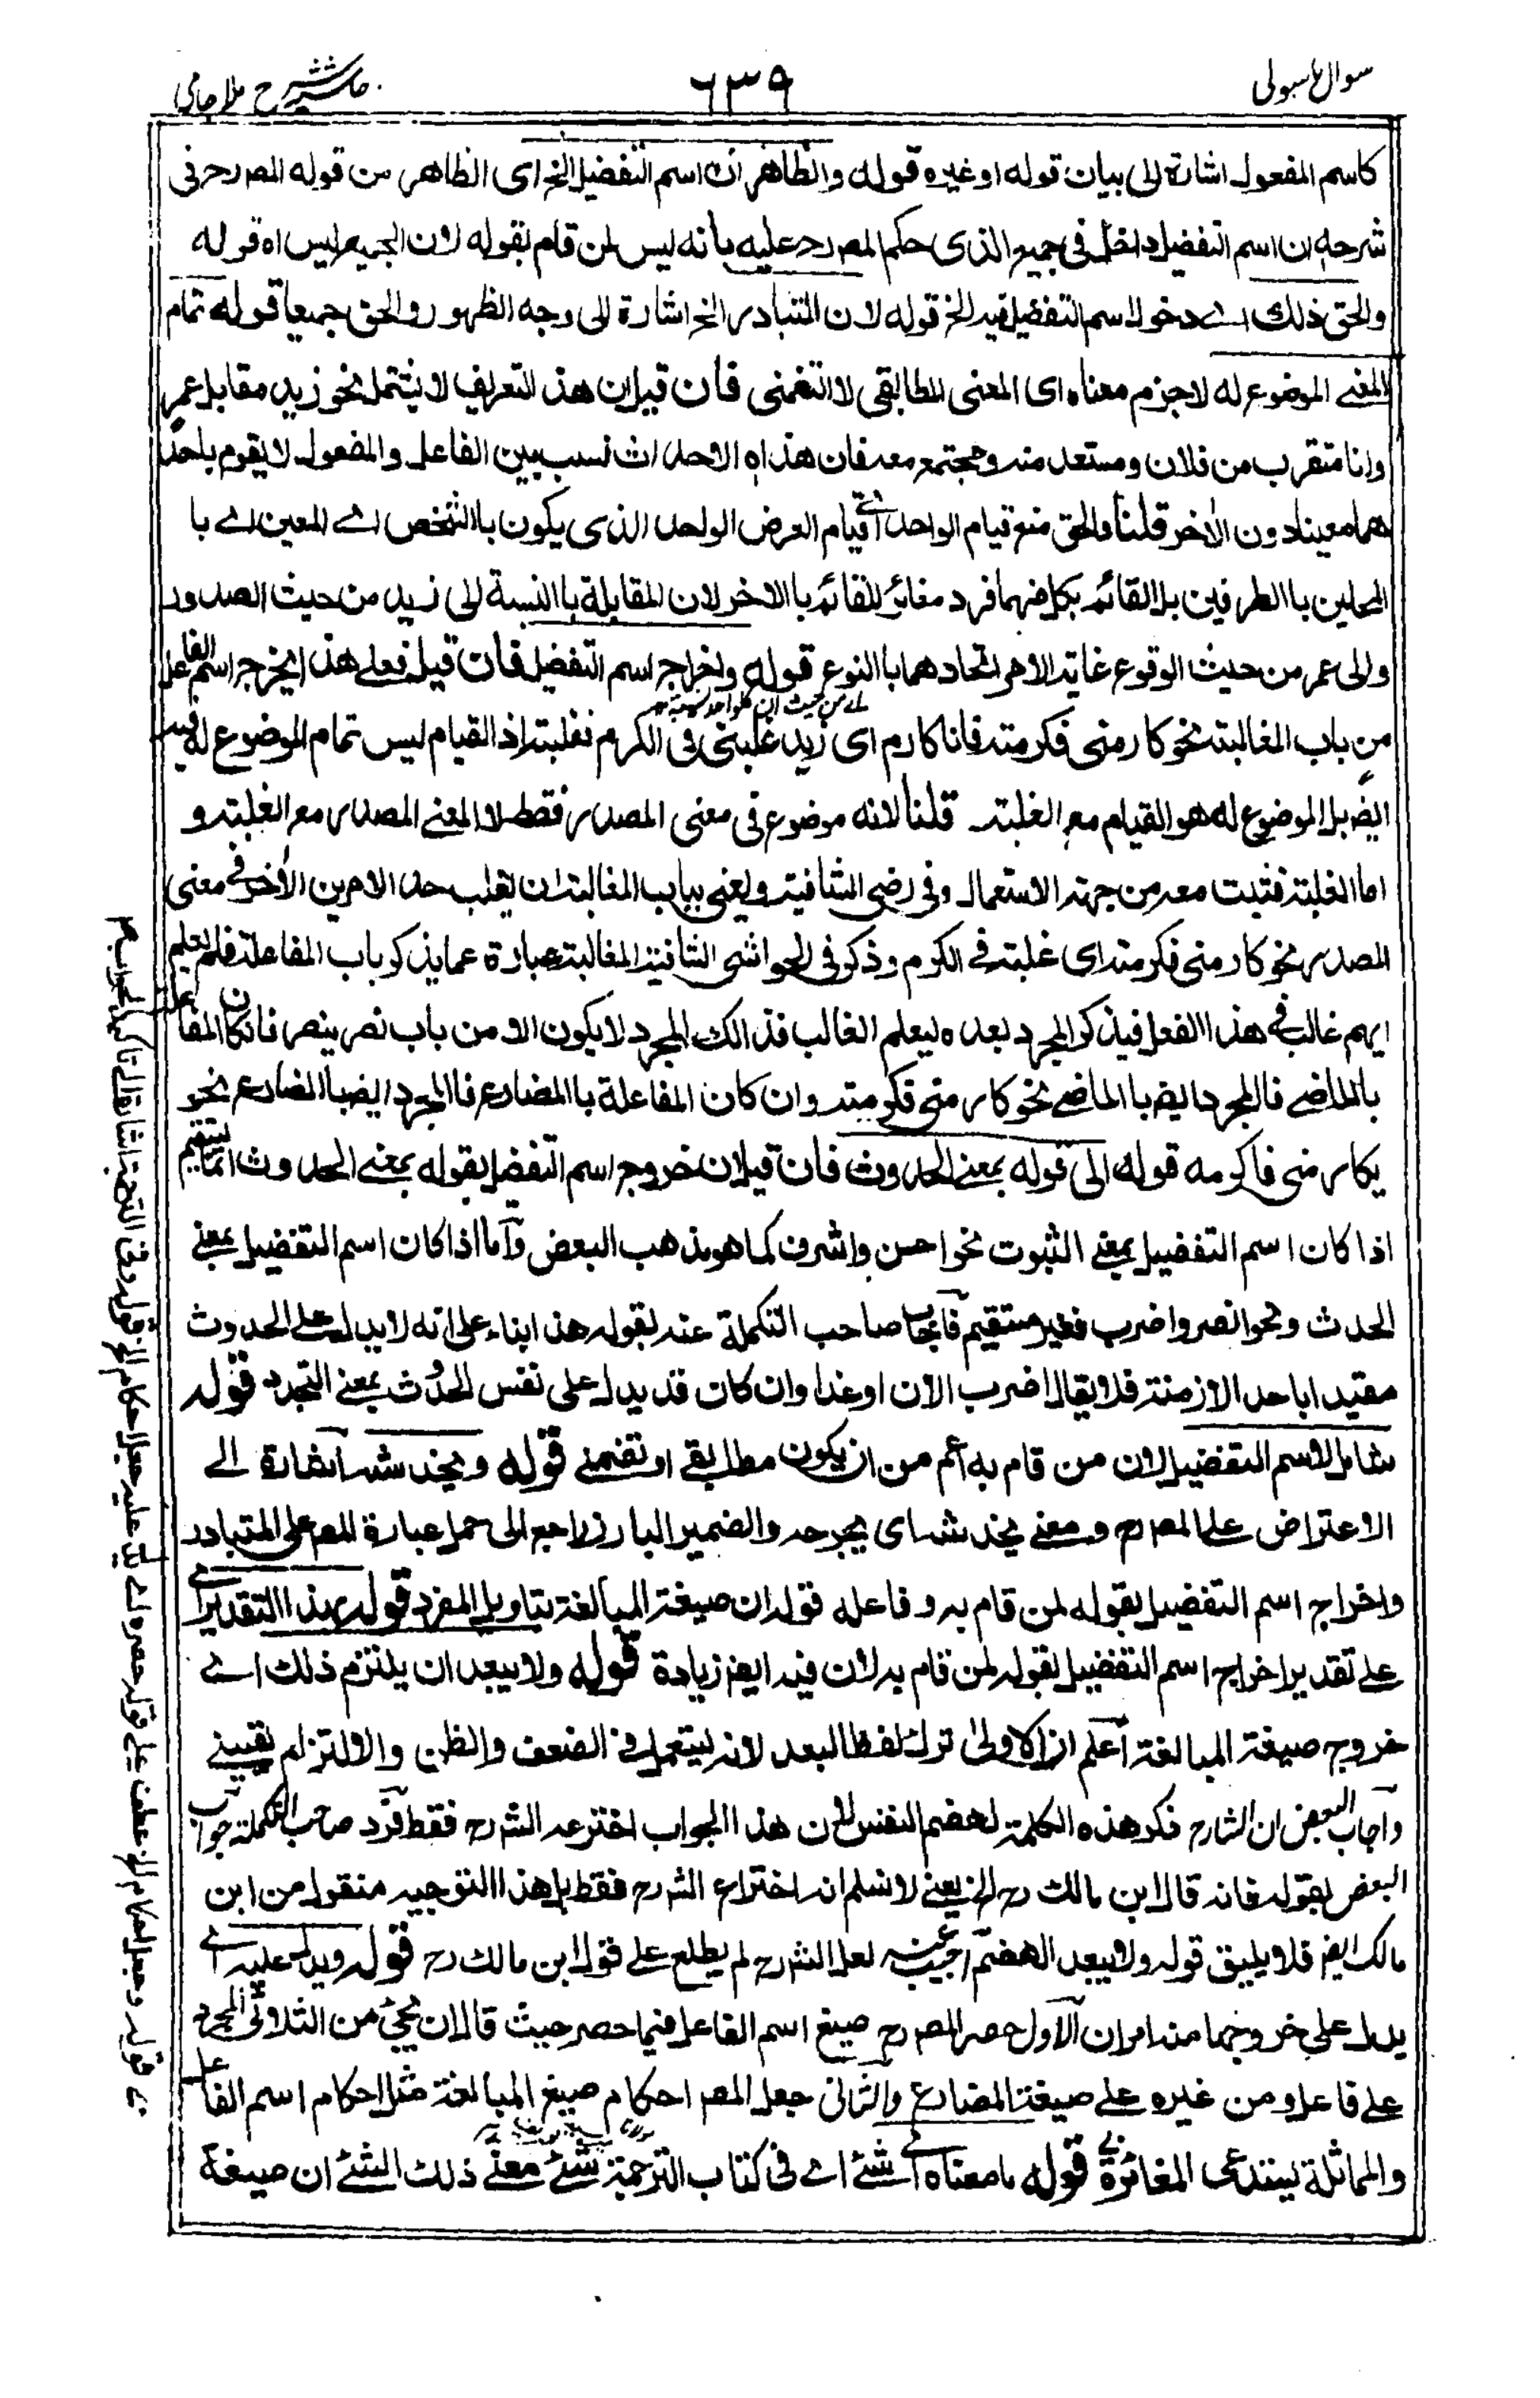 سوال باسولی
٦٣٩
حاشیہ شرح ملا جامی
كاسم المفعول اشارة الى بيان قوله او غيره قوله والظاهر ان اسم التفضيل الخ اى الظاهر من قوله المصرح فى
شرحه ان اسم التفضيل داخل فى جميع الذى حكم المصرح عليه بانه ليس لمن قام بقوله لان الجميع ليس اه قوله
والحق ذلك اے دخول اسم التفضيل قيد الخ قوله لان المتبادر الخ اشارة الى وجه الظهور والحق جميعا قوله تمام
المعنے الموضوع له لا جزء معناه اى المعنى المطابقى لا التضمنى فان قيل ان هذا التعريف لا يشتمل نحو زيد مقابل عمر
وانا متقرب من فلان ومستعد منه ومجتمع معه فان هذه الاحداث نسب بين الفاعل والمفعول لا يقوم باحد
هما معينا دون الاخر قلنا والحق منع قيام الواحد اے قيام العرض الواحد الذى يكون بالشخص اے المعين اے با
المحلين با الطرفين بل القائم بكل منهما فرد مغائر للقائم با الاخر لان المقابلة با النسبة الى زيد من حيث الصدور
والى عمر من حيث الوقوع غاية الامر اتحادهما با النوع قوله واخراج اسم التفضيل فان قيل فعلے هذا يخرج اسم الفاعل
من باب المغالبة نحو كارمنى فكرمته فانا كارم اى زيد غلبنى فى الكرم فغلبته اذ القيام ليس تمام الموضوع له فيه
ايض بل الموضوع له هو القيام مع الغلبة قلنا لانه موضوع فى معنى المصدر فقط لا المعنے المصدر مع الغلبة و
اما الغلبة فثبت معه من جهة الاستعمال وفى رضى الشافية ونعنى بباب المغالبة ان يغلب احد الامرين الاخر فے معنى
المصدر نحو كارمنى فكرمته اى غلبته فے الكرم وذكر فى الحواشى الشافية المغالبة عبارة عما يذكر باب المفاعلة فلم يعلم
ايهم غالب فے هذا الفعل فيذكر المجرد بعده ليعلم الغالب فذالك المجرد لا يكون الا من باب نصر ينصر فان كان المفاعلة
بالماضے فالمجرد ايض با الماضے نحو كارمنى فكرمته وان كان المفاعلة با المضارع فا المجرد ايض با المضارع نحو
يكارمنى فاكرمه قوله الى قوله بمعنے الحدوث فان قيل ان خروج اسم التفضيل بقوله بمعنے الحدوث انما يستقيم
اذا كان اسم التفضيل بمعنے الثبوت نحو احسن واشرف كما هو مذهب البعض واما اذا كان اسم التفضيل بمعنے
الحدث ونحو انصر واضرب فغير مستقيم فاجاب صاحب التكملة عنه بقوله هذا بناء على انه لا يدل علے الحدوث
مقيدا باحد الازمنة فلا يقال اضرب الان او غدا وان كان قد يدل على نفس الحدث بمعنے التجدد قوله
شامل لاسم التفضيل لان من قام به اعم من ان يكون مطابقے او تضمنے قوله ويخدشه اشارة الے
الاعتراض علے المصرح ومعنے يخدشه اى يجرحه والضمير البارز راجع الى حمل عبارة المصر على المتبادر
واخراج اسم التفضيل بقوله لمن قام به وفاعله قوله ان صيغة المبالغة بتاويل المفرد قوله بهذا التقدير اے
علے تقدير اخراج اسم التفضيل بقوله لمن قام به لان فيه ايض زيادة قوله ولا يبعد ان يلتزم ذلك اے
خروج صيغة المبالغة اعلم ان الاولىٰ ترك لفظ البعد لانه يستعمل فے الضعف والظن والالتزام يقينے
واجاب البعض ان الشارح ذكر هذه الكلمة لهضم النفس لان هذا الجواب اخترعه الشرح فقط فرد صاحب التكملة جواب
البعض بقوله فانه قال ابن مالك رح الخ يعنے لا نسلم انه اختراع الشرح فقط بل هذا التوجيه منقول من ابن
مالك ايض فلا يليق قوله ولا يبعد الهضم اجيب عنه لعل الشرح لم يطلع على قول ابن مالك رح قوله ويدل عليه اے
يدل على خروجها منه امران الاول حصر المصرح صيغ اسم الفاعل فيما حصر حيث قال ان يجئ من الثلاثى المجرد
علے فاعل ومن غيره علے صيغة المضارع والثانى جعل المصر احكام صيغ المبالغة مثل احكام اسم الفاعل
والمماثلة يستدعى المغائرة قوله ما معناه اے شئے اے فى كتاب الترجمة شئے معنے ذلك الشئے ان صيغة